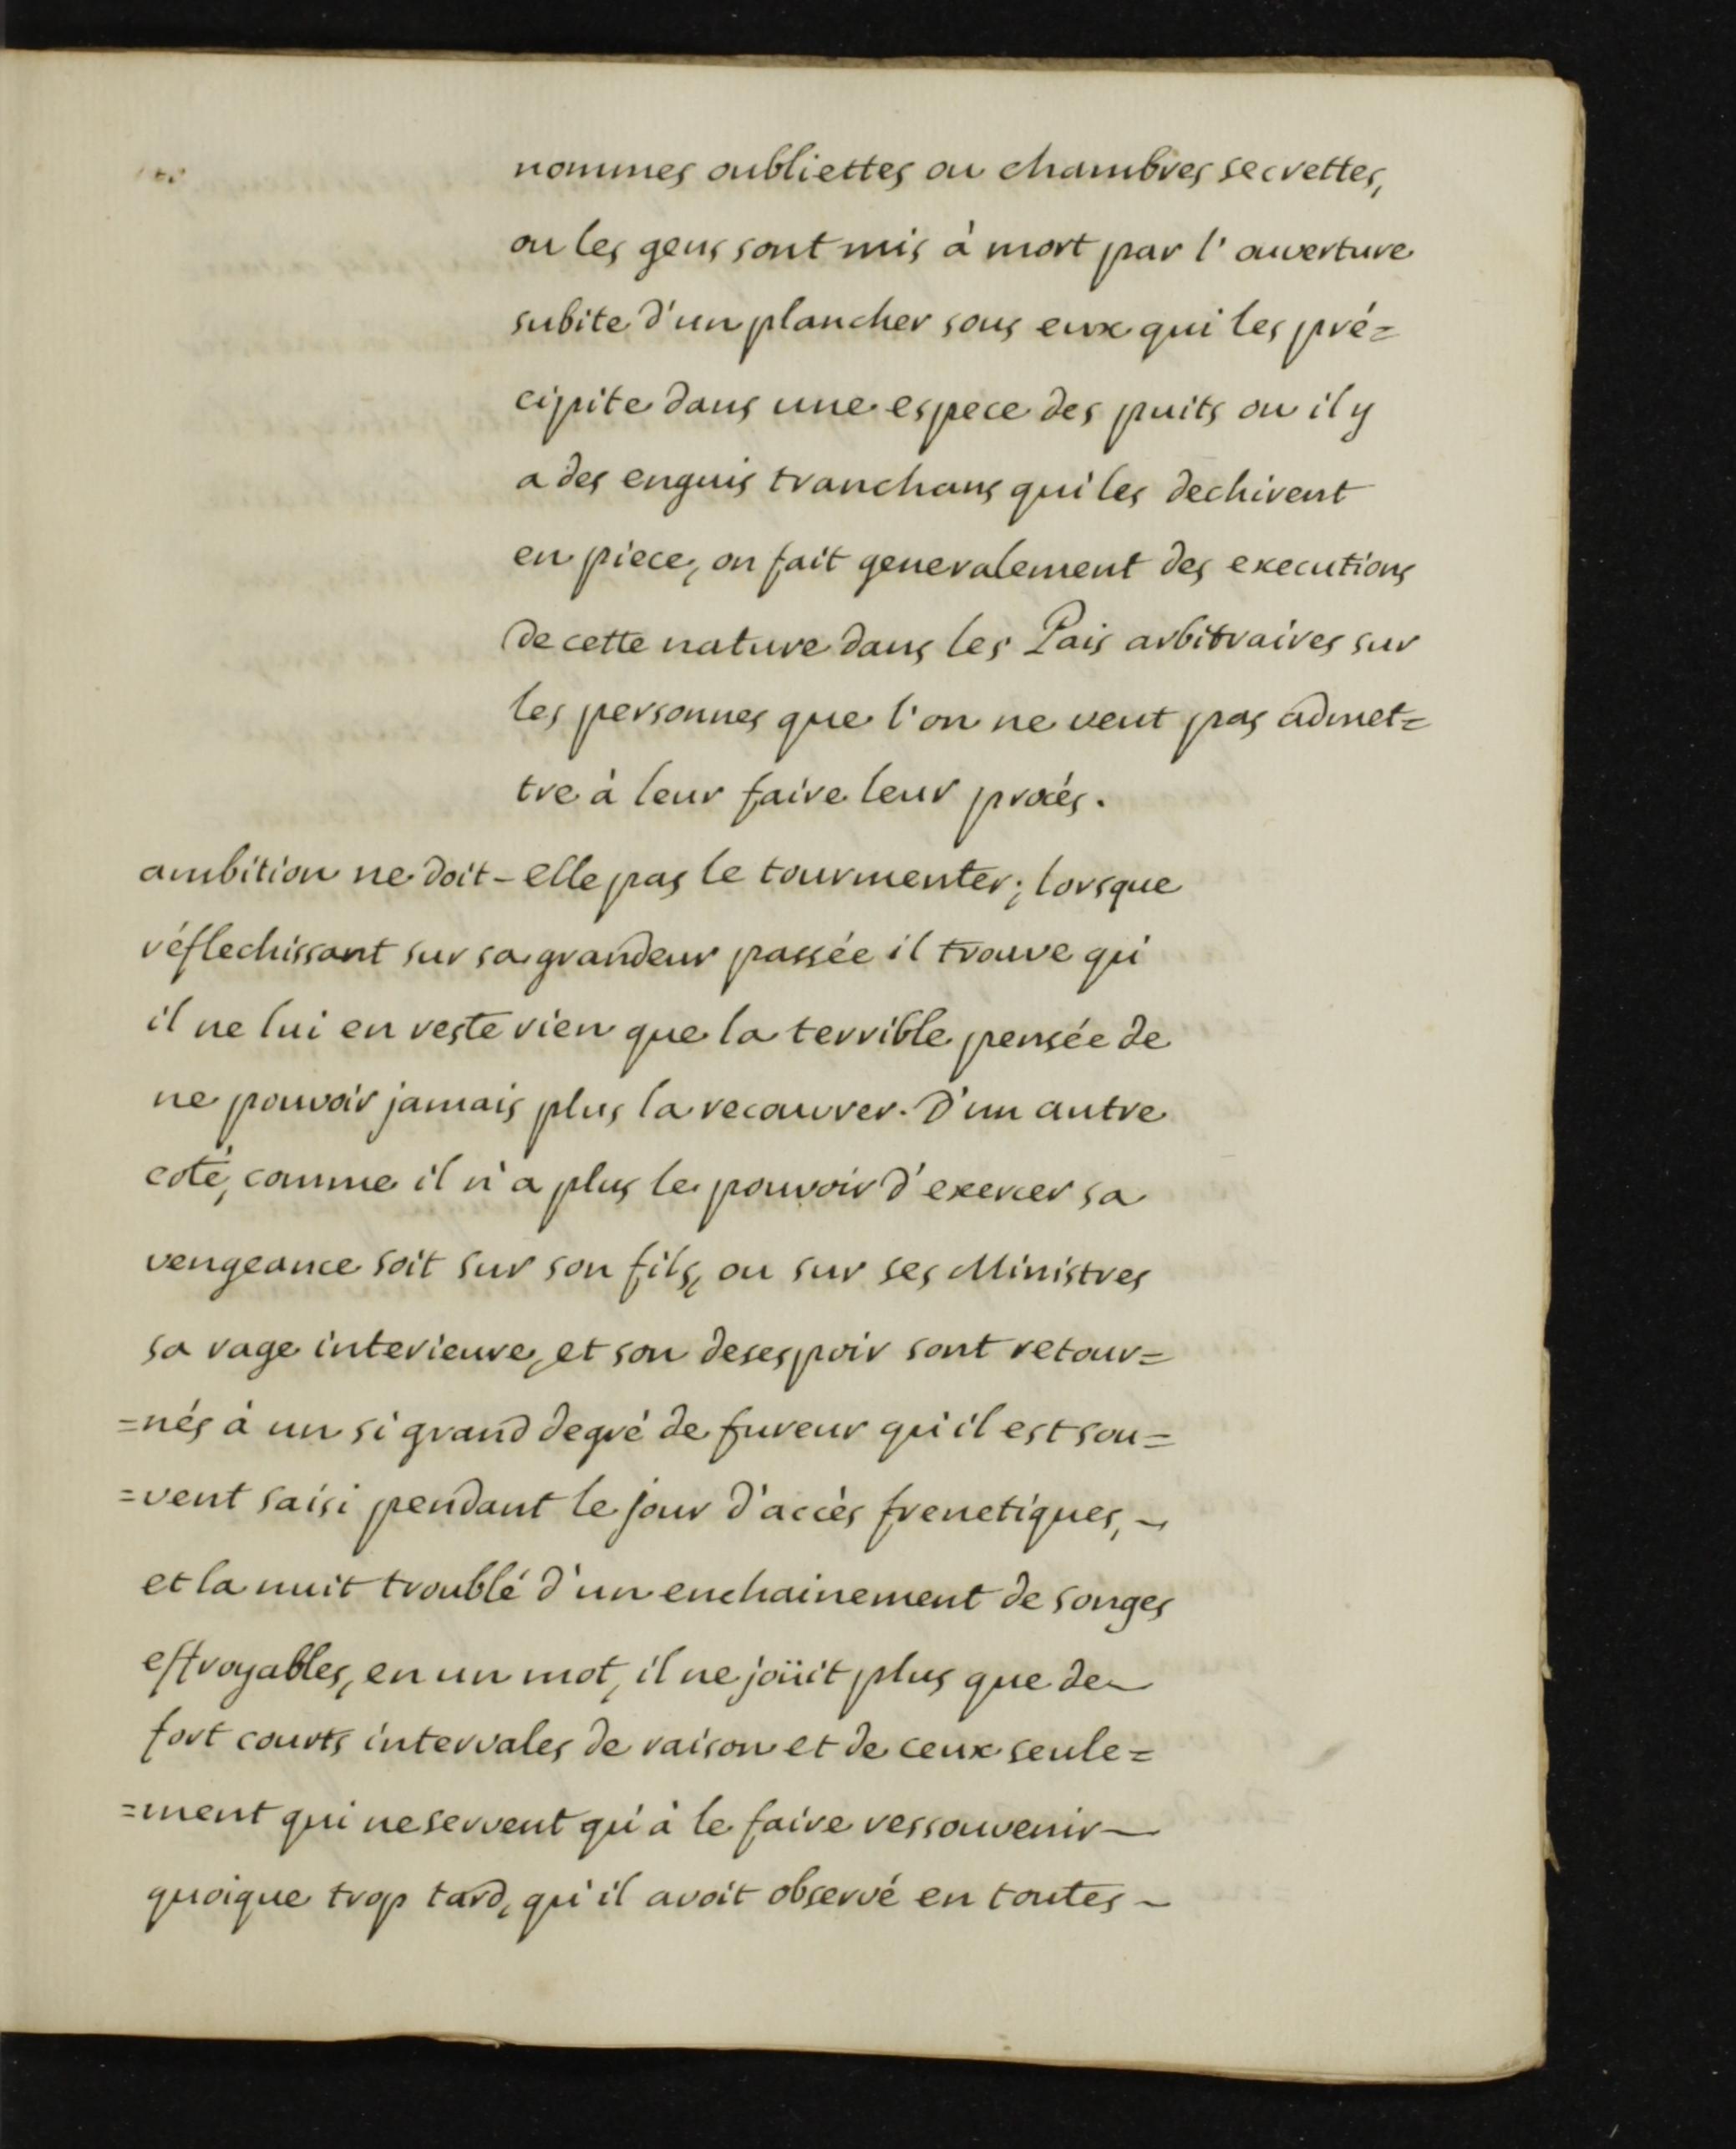 nommes oubliettes ou chambres secrettes,
ou les gens sont mis à mort par l'ouverture
subite d'un plancher sous eux qui les pré=
cipite dans une espece des puits ou il y
a des enguis tranchans qui les dechirent
en piece, on fait generalement des executions
de cette nature dans les Pais arbitraires sur
les personnes que l'on ne veut pas admet=
tre à leur faire leur procés.
ambition ne doit-elle pas le tourmenter; lorsque
réflechissant sur sa grandeur passée il trouve qu'
il ne lui en reste rien que la terrible pensée de
ne pouvoir jamais plus la recouvrer. D'un autre
coté, comme il n'a plus le pouvoir d'exercer sa
vengeance soit sur son fils, ou sur ses Ministres
sa rage interieure, et son desespoir sont retour=
=nés à un si grand degré de fureur qu'il est sou=
=vent saisi pendant le jour d'accès frenetiques,
et la nuit troublé d'un enchainement de songes
effroyables, en un mot, il ne joüit plus que de
fort courts intervales de raison et de ceux seule=
=ment qui ne servent qu'à le faire ressouvenir
quoique trop tard, qu'il avoit observé en toutes